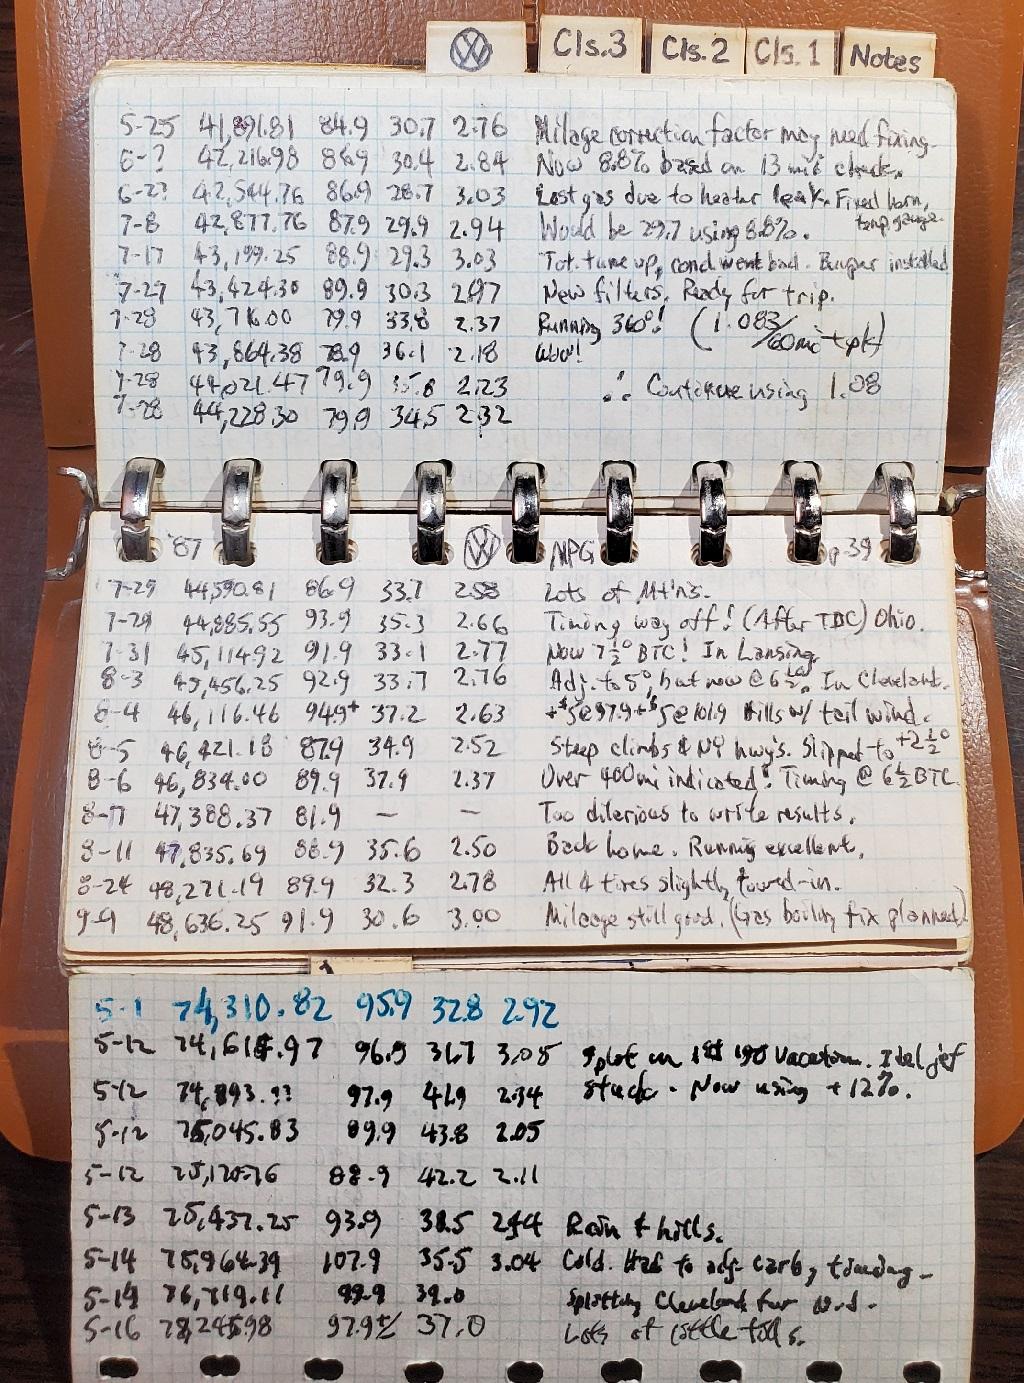 Cls.3 Cls.2 Cls.1 Notes
5-25 41,891.81 84.9 30.7 2.76 Milage correction factor may need fixing.
6-? 42,216.98 86.9 30.4 2.84 Now 8.8% based on 13 mile check.
6-2? 42,544.76 86.9 28.7 3.03 Lost gas due to heater leak. Fixed horn, temp gauge.
7-8 42,877.76 87.9 29.9 2.94 Would be 29.7 using 8.8%.
7-17 43,199.25 88.9 29.3 3.03 Tot. tune up, cond. went bad. Bumper installed
7-27 43,424.30 89.9 30.3 2.97 New filters. Ready for trip.
7-28 79.9 33.8 2.37 Running 360°! (1.083/60mi
7-28 43,864.38 78.9 36.1 2.18 Wow!
7-28 44,021.47 79.9 35.8 2.23 ∴ Continue using 1.08
7-28 44,228.30 79.9 34.5 2.32
'87 VW MPG p.39
7-29 44,590.81 86.9 33.7 2.58 Lots of Mt'ns.
7-29 44,885.55 93.9 35.3 2.66 Timing way off! (After TDC) Ohio.
7-31 45,114.92 91.9 33.1 2.77 Now 7½° BTC! In Lansing.
8-3 45,456.25 92.9 33.7 2.76 Adj. to 5°, but now @ 6½. In Cleveland.
8-4 46,116.46 94.9+ 37.2 2.63 +$5@97.9+$5@101.9 Hills w/ tail wind.
8-5 46,421.18 87.9 34.9 2.52 Steep climbs & NY hwy's. Slipped to +2½°
8-6 46,834.00 89.9 37.9 2.37 Over 400mi indicated! Timing @ 6½ BTC.
47,388.37 81.9 — — Too dilerious to write results.
8-11 47,835.69 88.9 35.6 2.50 Back home. Running excellent.
8-24 48,271.19 89.9 32.3 2.78 All 4 tires slightly toured-in.
9-9 48,636.25 91.9 30.6 3.00 Mileage still good. (Gas boiling fix planned)
5-1 74,310.82 95.9 32.8 2.92
5-12 96.9 31.7 3.05 Splot on 1st 190 Vacation. Idel jet
5-12 74,893.?? 97.9 41.9 2.34 stuck. Now using +12%.
5-12 75,045.83 89.9 43.8 2.05
5-12 88.9 42.2 2.11
5-13 75,437.25 93.9 38.5 2.44 Rain & hills.
5-14 75,964.39 107.9 35.5 3.04 Cold. Had to adj. carb, timing.
5-14 76,719.11 99.9 39.0 Splitting Cleveland for
5-16 97.9 37.0 Lots of little tolls.